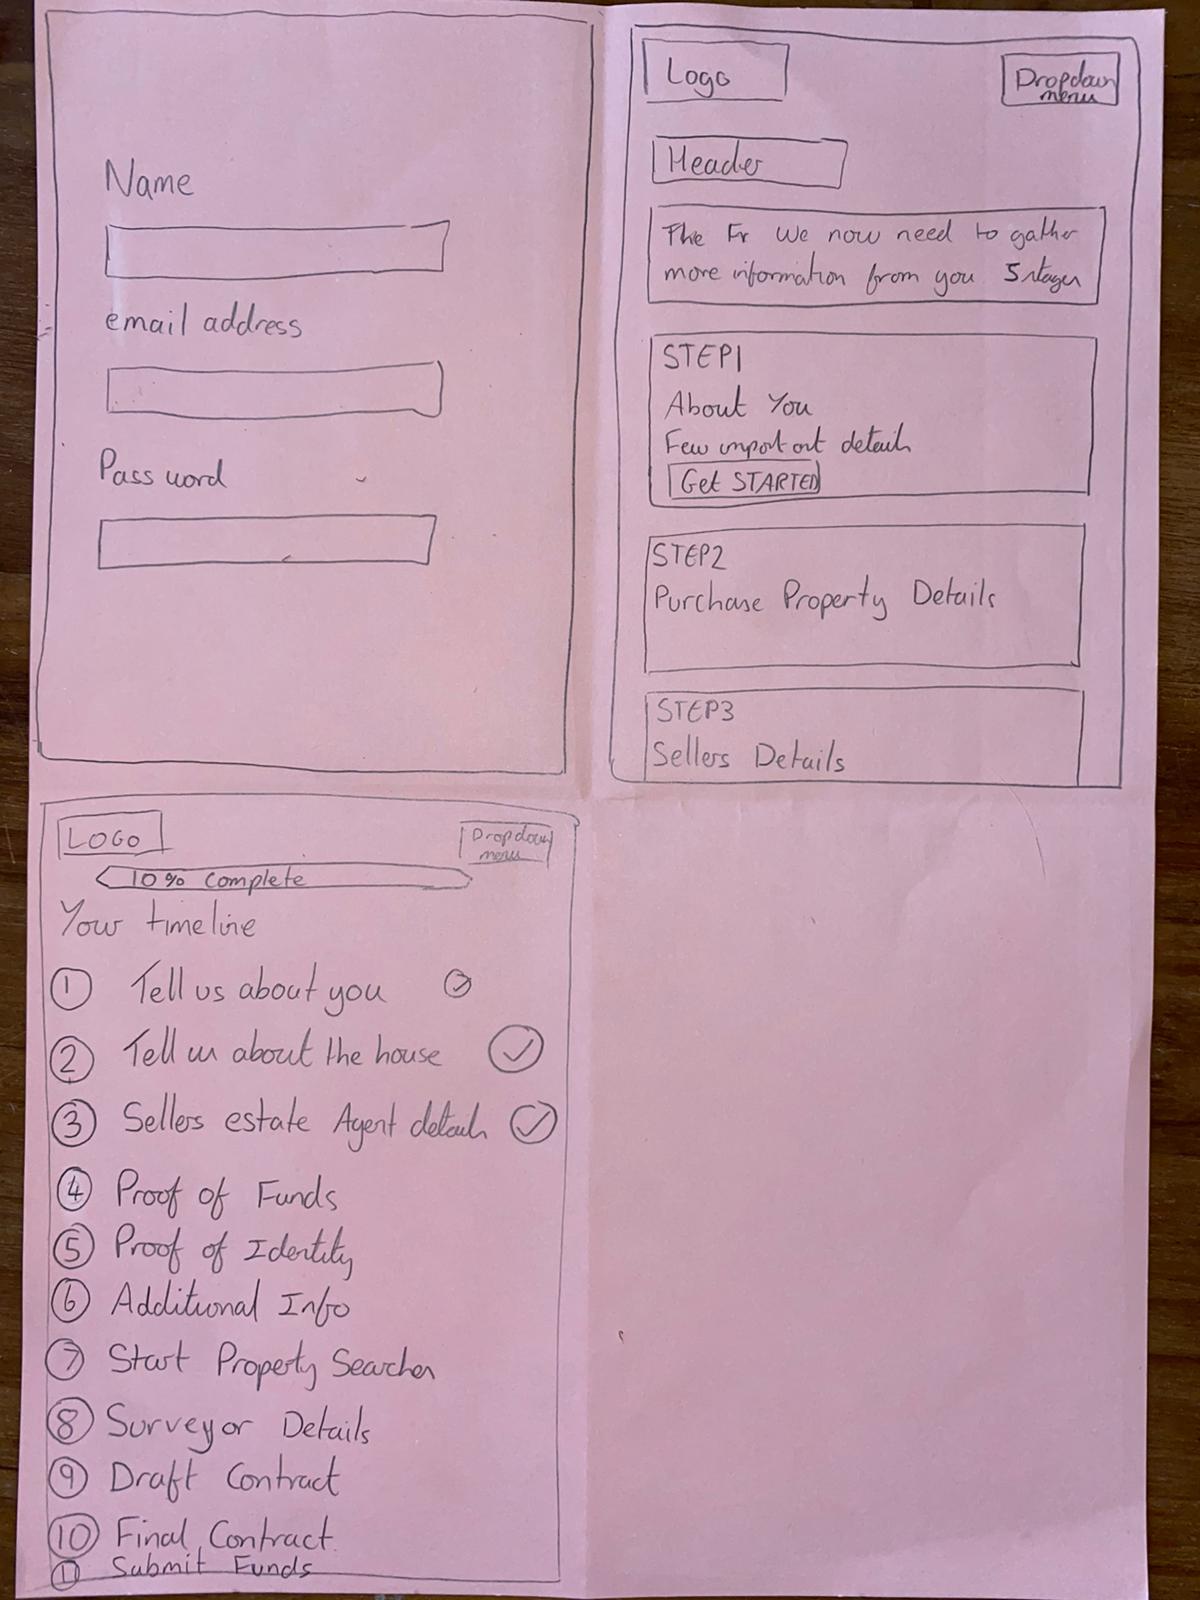 Name
email address
Password
Logo
Dropdown
menu
Header
The Fr We now need to gather
more information from you 5 stages
STEP1
About You
Few important details
Get STARTED
STEP2
Purchase Property Details
STEP3
Sellers Details
LOGO
Dropdown
menu
10% Complete
Your timeline
1 Tell us about you
2 Tell us about the house
3 Sellers estate Agent details
4 Proof of Funds
5 Proof of Identity
6 Additional Info
7 Start Property Searches
8 Surveyor Details
9 Draft Contract
10 Final Contract
11 Submit Funds